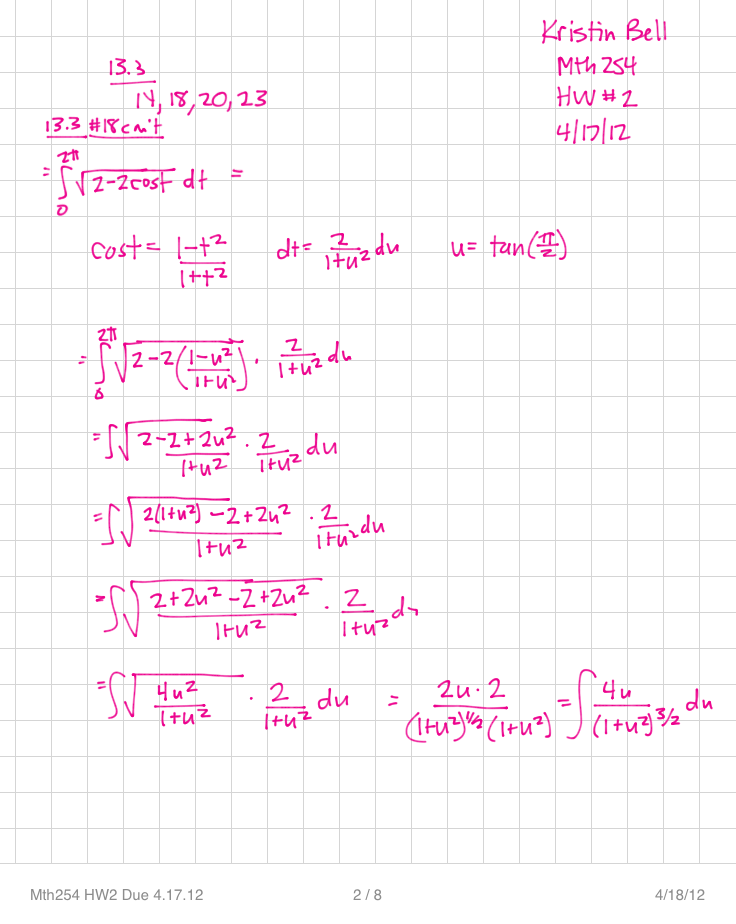 Kristin Bell
Mth 254
HW # 2
4/17/12
13.3
14, 18, 20, 23
13.3 #18 con't
= ∫₀^{2π} √(2-2cost) dt =
cost = (1-t²)/(1+t²)   dt = 2/(1+u²) du   u = tan(π/2)
= ∫₀^{2π} √(2-2((1-u²)/(1+u²))) · 2/(1+u²) du
= ∫ √(2 - (2+2u²)/(1+u²)) · 2/(1+u²) du
= ∫ √((2(1+u²) -2+2u²)/(1+u²)) · 2/(1+u²) du
= ∫ √((2+2u² -2+2u²)/(1+u²)) · 2/(1+u²) du
= ∫ √(4u²/(1+u²)) · 2/(1+u²) du = (2u·2)/((1+u²)^{1/2} (1+u²)) = ∫ 4u/(1+u²)^{3/2} du
Mth254 HW2 Due 4.17.12   2 / 8   4/18/12